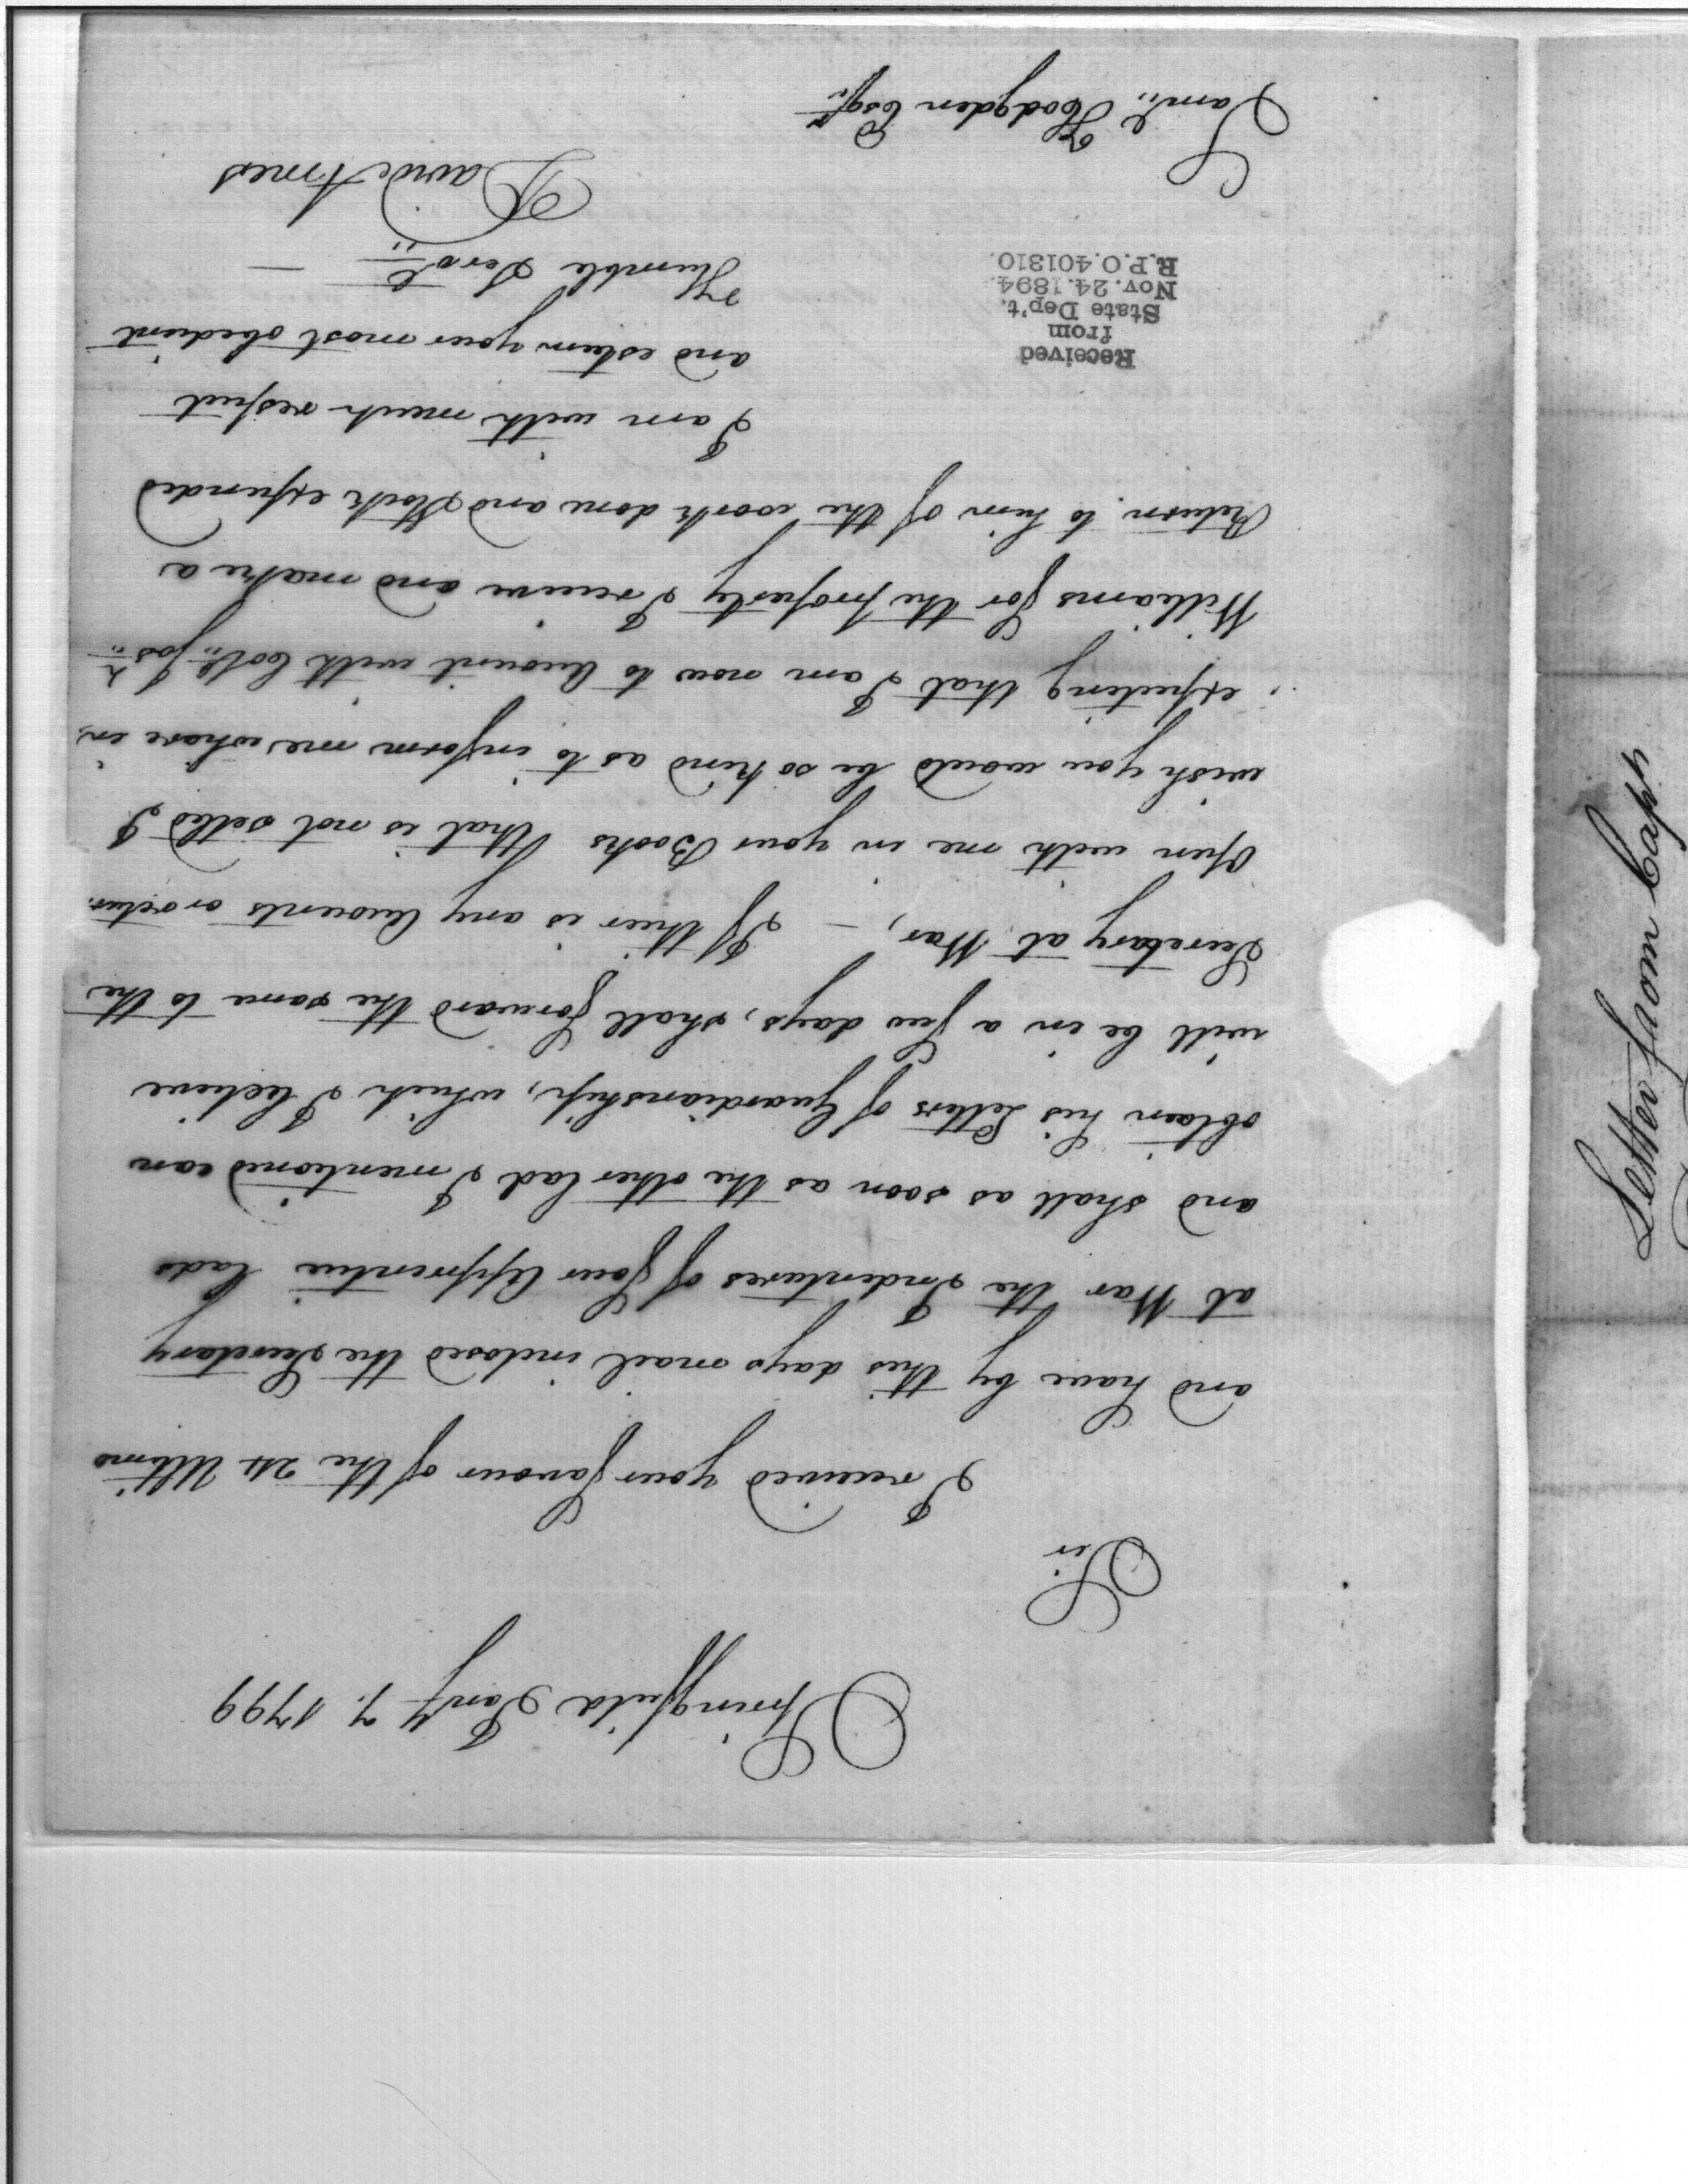 Springfield Jany 7. 1799
Sir
I received your favour of the 24 Ultimo
and have by this days mail inclosed the Secretary
at War the Indentures of four Apprentice lads
and shall as soon as the other lad I mentioned can
obtain his Letters of Guardianship, which I believe
will be in a few days, shall forward the same to the
Secretary at War, — If thier is any Accounts or
Open with me in your Books that is not settled I
wish you would be so kind as to inform me whare in,
expecting that I am now to Account with Col. Jos.
Williams for the property I receive and make a
Return to him of the work done and Stock expended
I am with much respect
and esteem your most obedient
Humble Servt
David Ames
Saml Hodgden Esqr
Received
from
State Dep't.
Nov. 24. 1894.
R.P.O. 401310.
Letter from Capp